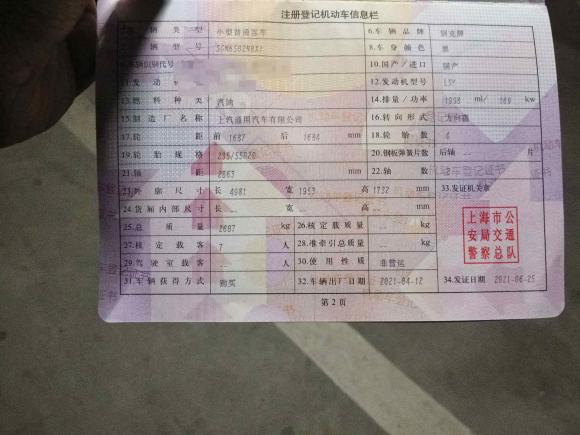 注册登记机动车信息栏
5.车辆类型 小型普通客车 6.车辆品牌 别克牌
车辆型号 8.车身颜色 黑
车辆识别代号 10.国产/进口 国产
11.发动 12.发动机型号 LSY
13.燃料种类 汽油 14.排量/功率 1998 ml/ 169 kw
15.制造厂名称 上汽通用汽车有限公司 16.转向形式 方向盘
17.轮距 前 1687 后 1684 mm 18.轮胎数 4
19.轮胎规格 235/55R20 20.钢板弹簧片数 后轴 -- 片
21.轴距 2863 mm 22.轴数 2
23.外廓尺寸 长 4981 宽 1953 高 1732 mm 33.发证机关章
24.货厢内部尺寸 长 -- 宽 -- 高 -- mm
25.总质量 2607 kg 26.核定载质量 -- kg
27.核定载客 7 人 28.准牵引总质量 -- kg
29.驾驶室载客 -- 人 30.使用性质 非营运
31.车辆获得方式 购买 32.车辆出厂日期 2021-04-12 34.发证日期 2021-06-25
上海市公
安局交通
警察总队
第2页